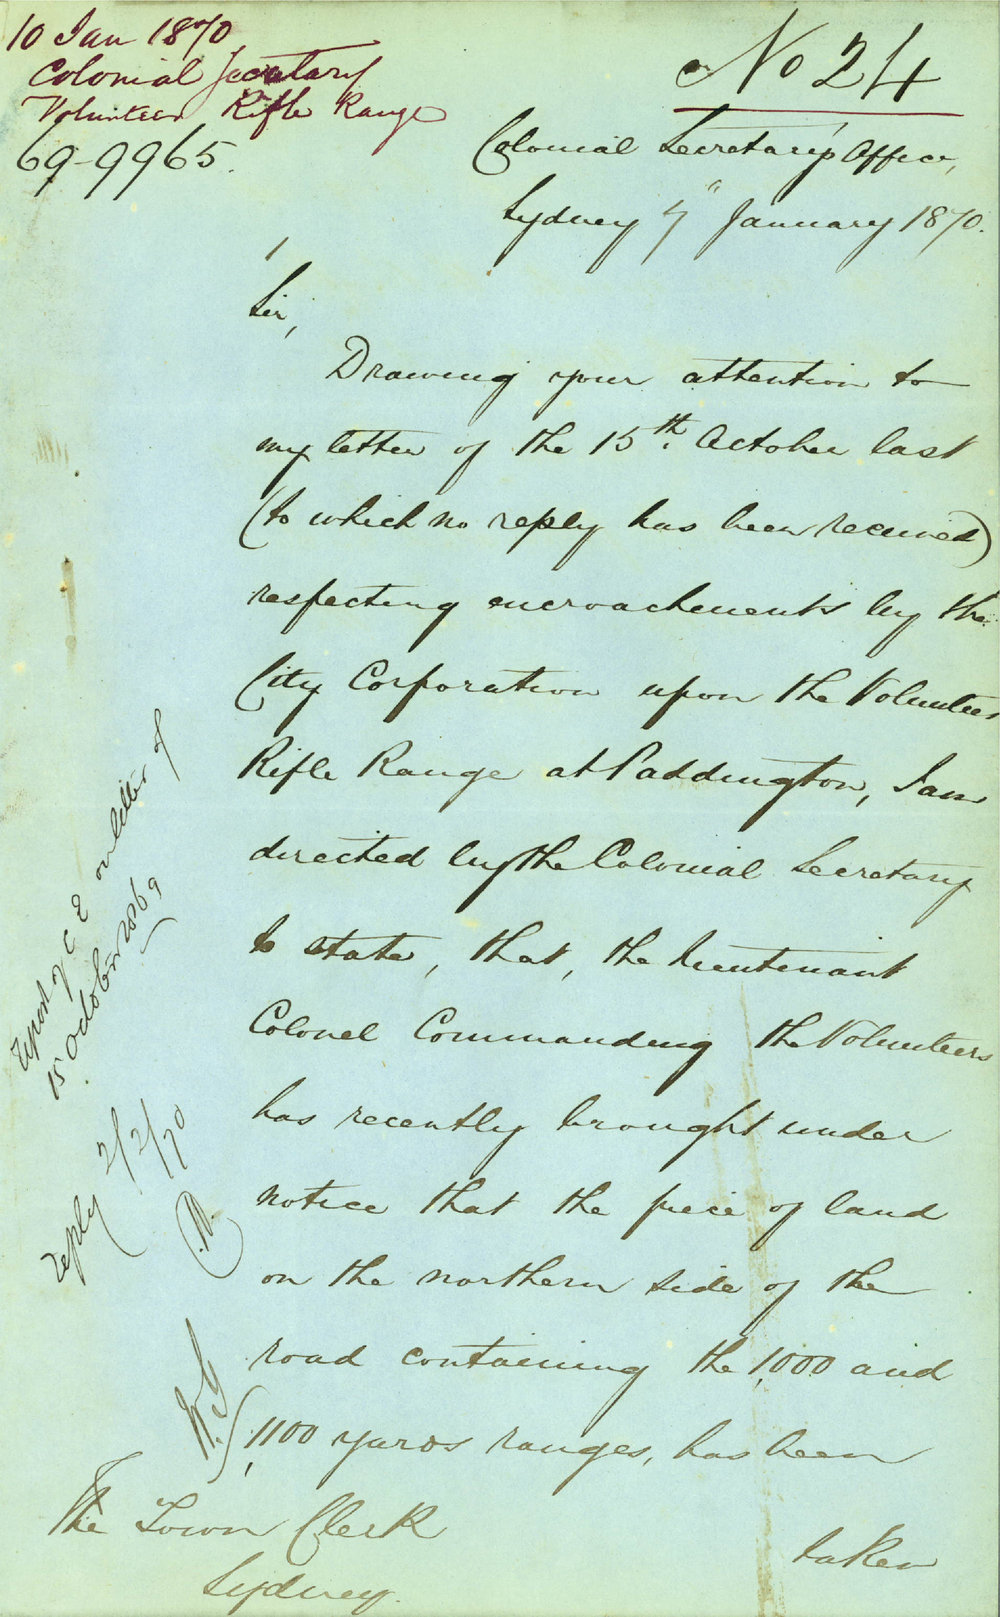 10 Jan 1870
Colonial Secretary
Volunteer Rifle Range
69-9965.
No 24
Colonial Secretary's Office,
Sydney 7" January 1870.
Sir,
Drawing your attention to
my letter of the 15th. October last
(to which no reply has been received)
respecting encroachments by the
City Corporation upon the Volunteer
Rifle Range at Paddington, I am
directed by the Colonial Secretary
to state, that, the Lieutenant
Colonel Commanding the Volunteers
has recently brought under
notice that the piece of land
on the northern side of the
road containing the 1,000 and
1,100 yards ranges, has been
taken
The Town Clerk
Sydney.
report of C E on letter of
15 October 1869
reply 2/2/70